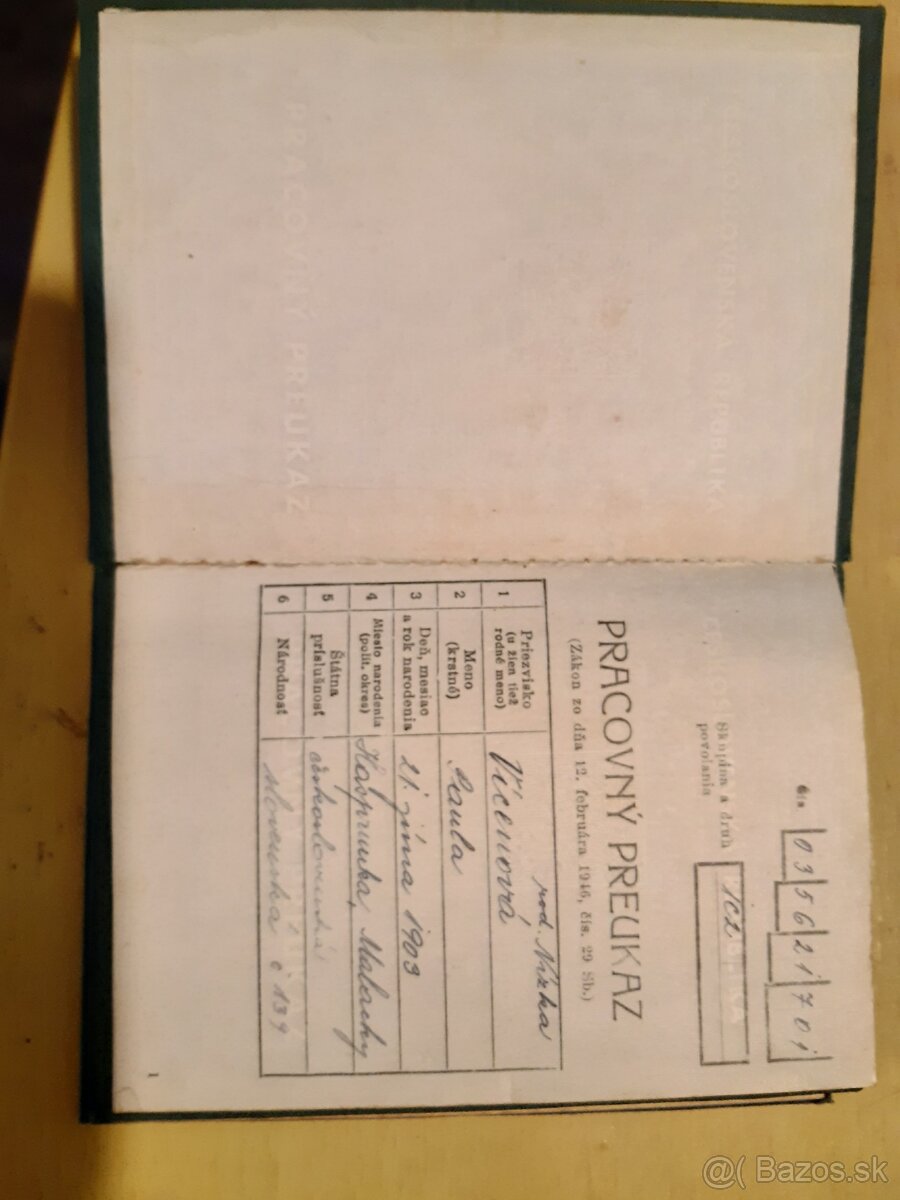 PRACOVNÝ PREUKAZ
čís. 03562170i
Skupina a druh
povolania
102
PRACOVNÝ PREUKAZ
(Zákon zo dňa 12. februára 1946, čís. 29 Sb.)
1 Priezvisko
(u žien tiež
rodné meno)
rod. Nízka
Vícenová
2 Meno
(krstné)
Paula
3 Deň, mesiac
a rok narodenia
21. júna 1903
4 Miesto narodenia
(polit. okres)
Kašprunka, Malacky
5 Štátna
príslušnosť
československá
6 Národnosť
slovenská č 139
1
@( Bazos.sk